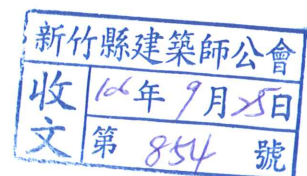 新竹縣建築師公會
收文
106年9月25日
第 854 號